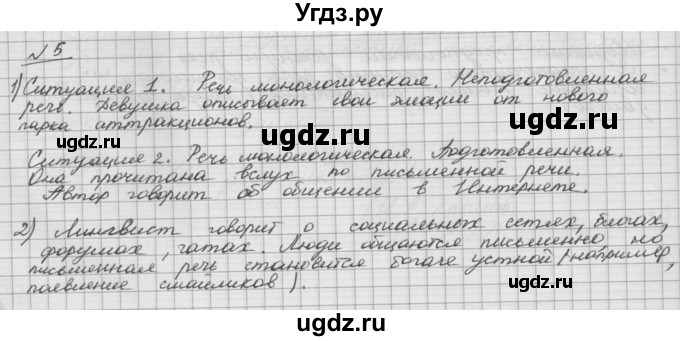 Угдз.ру
№ 5
1) Ситуация 1. Речь монологическая. Неподготовленная
речь. Девушка описывает свои эмоции от нового
парка аттракционов.
ugdz.ru ugdz.ru
Ситуация 2. Речь монологическая. Подготовленная.
Она прочитана вслух по письменной речи.
ugdz.ru ugdz.ru
Автор говорит об общении в Интернете.
2) Лингвист говорит о социальных сетях, блогах,
форумах, чатах. Люди общаются письменно, но
ugdz.ru ugdz.ru
письменная речь становится богаче устной (например,
появление смайликов).
ugdz.ru ugdz.ru